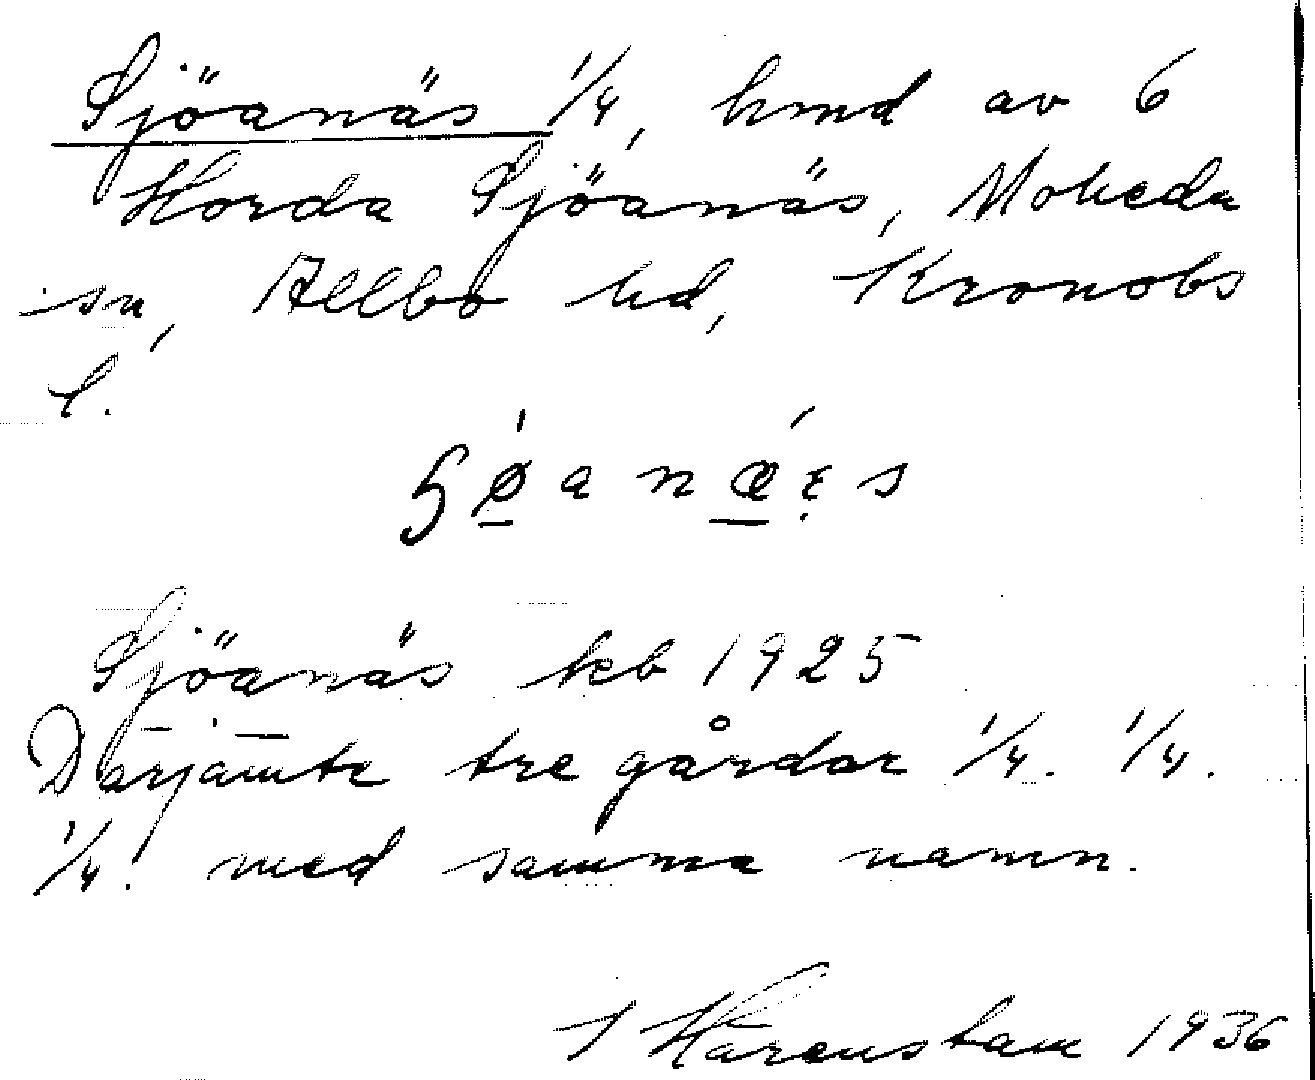 Sjöanäs 1/4, hmd av 6
Horda Sjöanäs, Moheda
sn, Allbo hd, Kronobs
l.
Sjöanäs kb 1925
Därjämte tre gårdar 1/4. 1/4.
1/4. med samma namn.
I Härenstam 1936